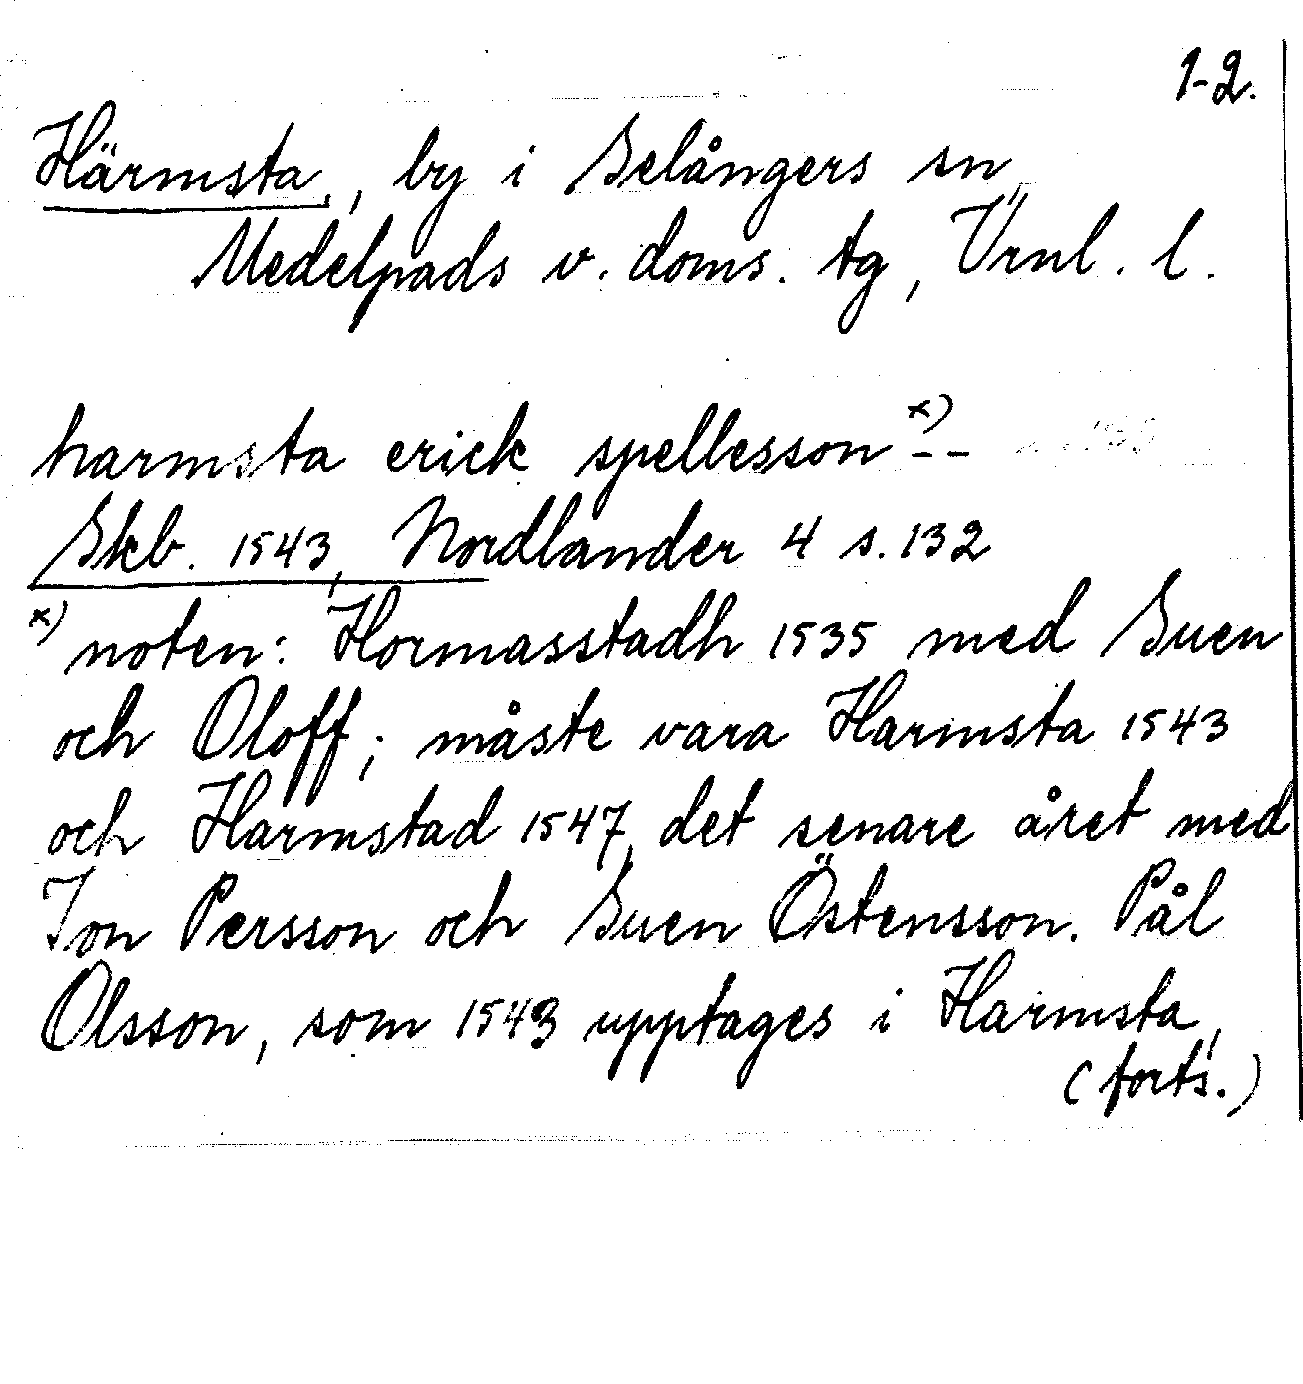 1-2.
Härmsta, by i Selångers sn
Medelpads v. doms. tg, Vrnl. l.
harmsta erick spellesson x) --
Skb. 1543, Nordlander 4 s. 132
x) noten: Hormasstadh 1535 med Suen
och Oloff; måste vara Harmsta 1543
och Harmstad 1547, det senare året med
Jon Persson och Suen Östensson. Pål
Olsson, som 1543 upptages i Harmsta,
(forts.)